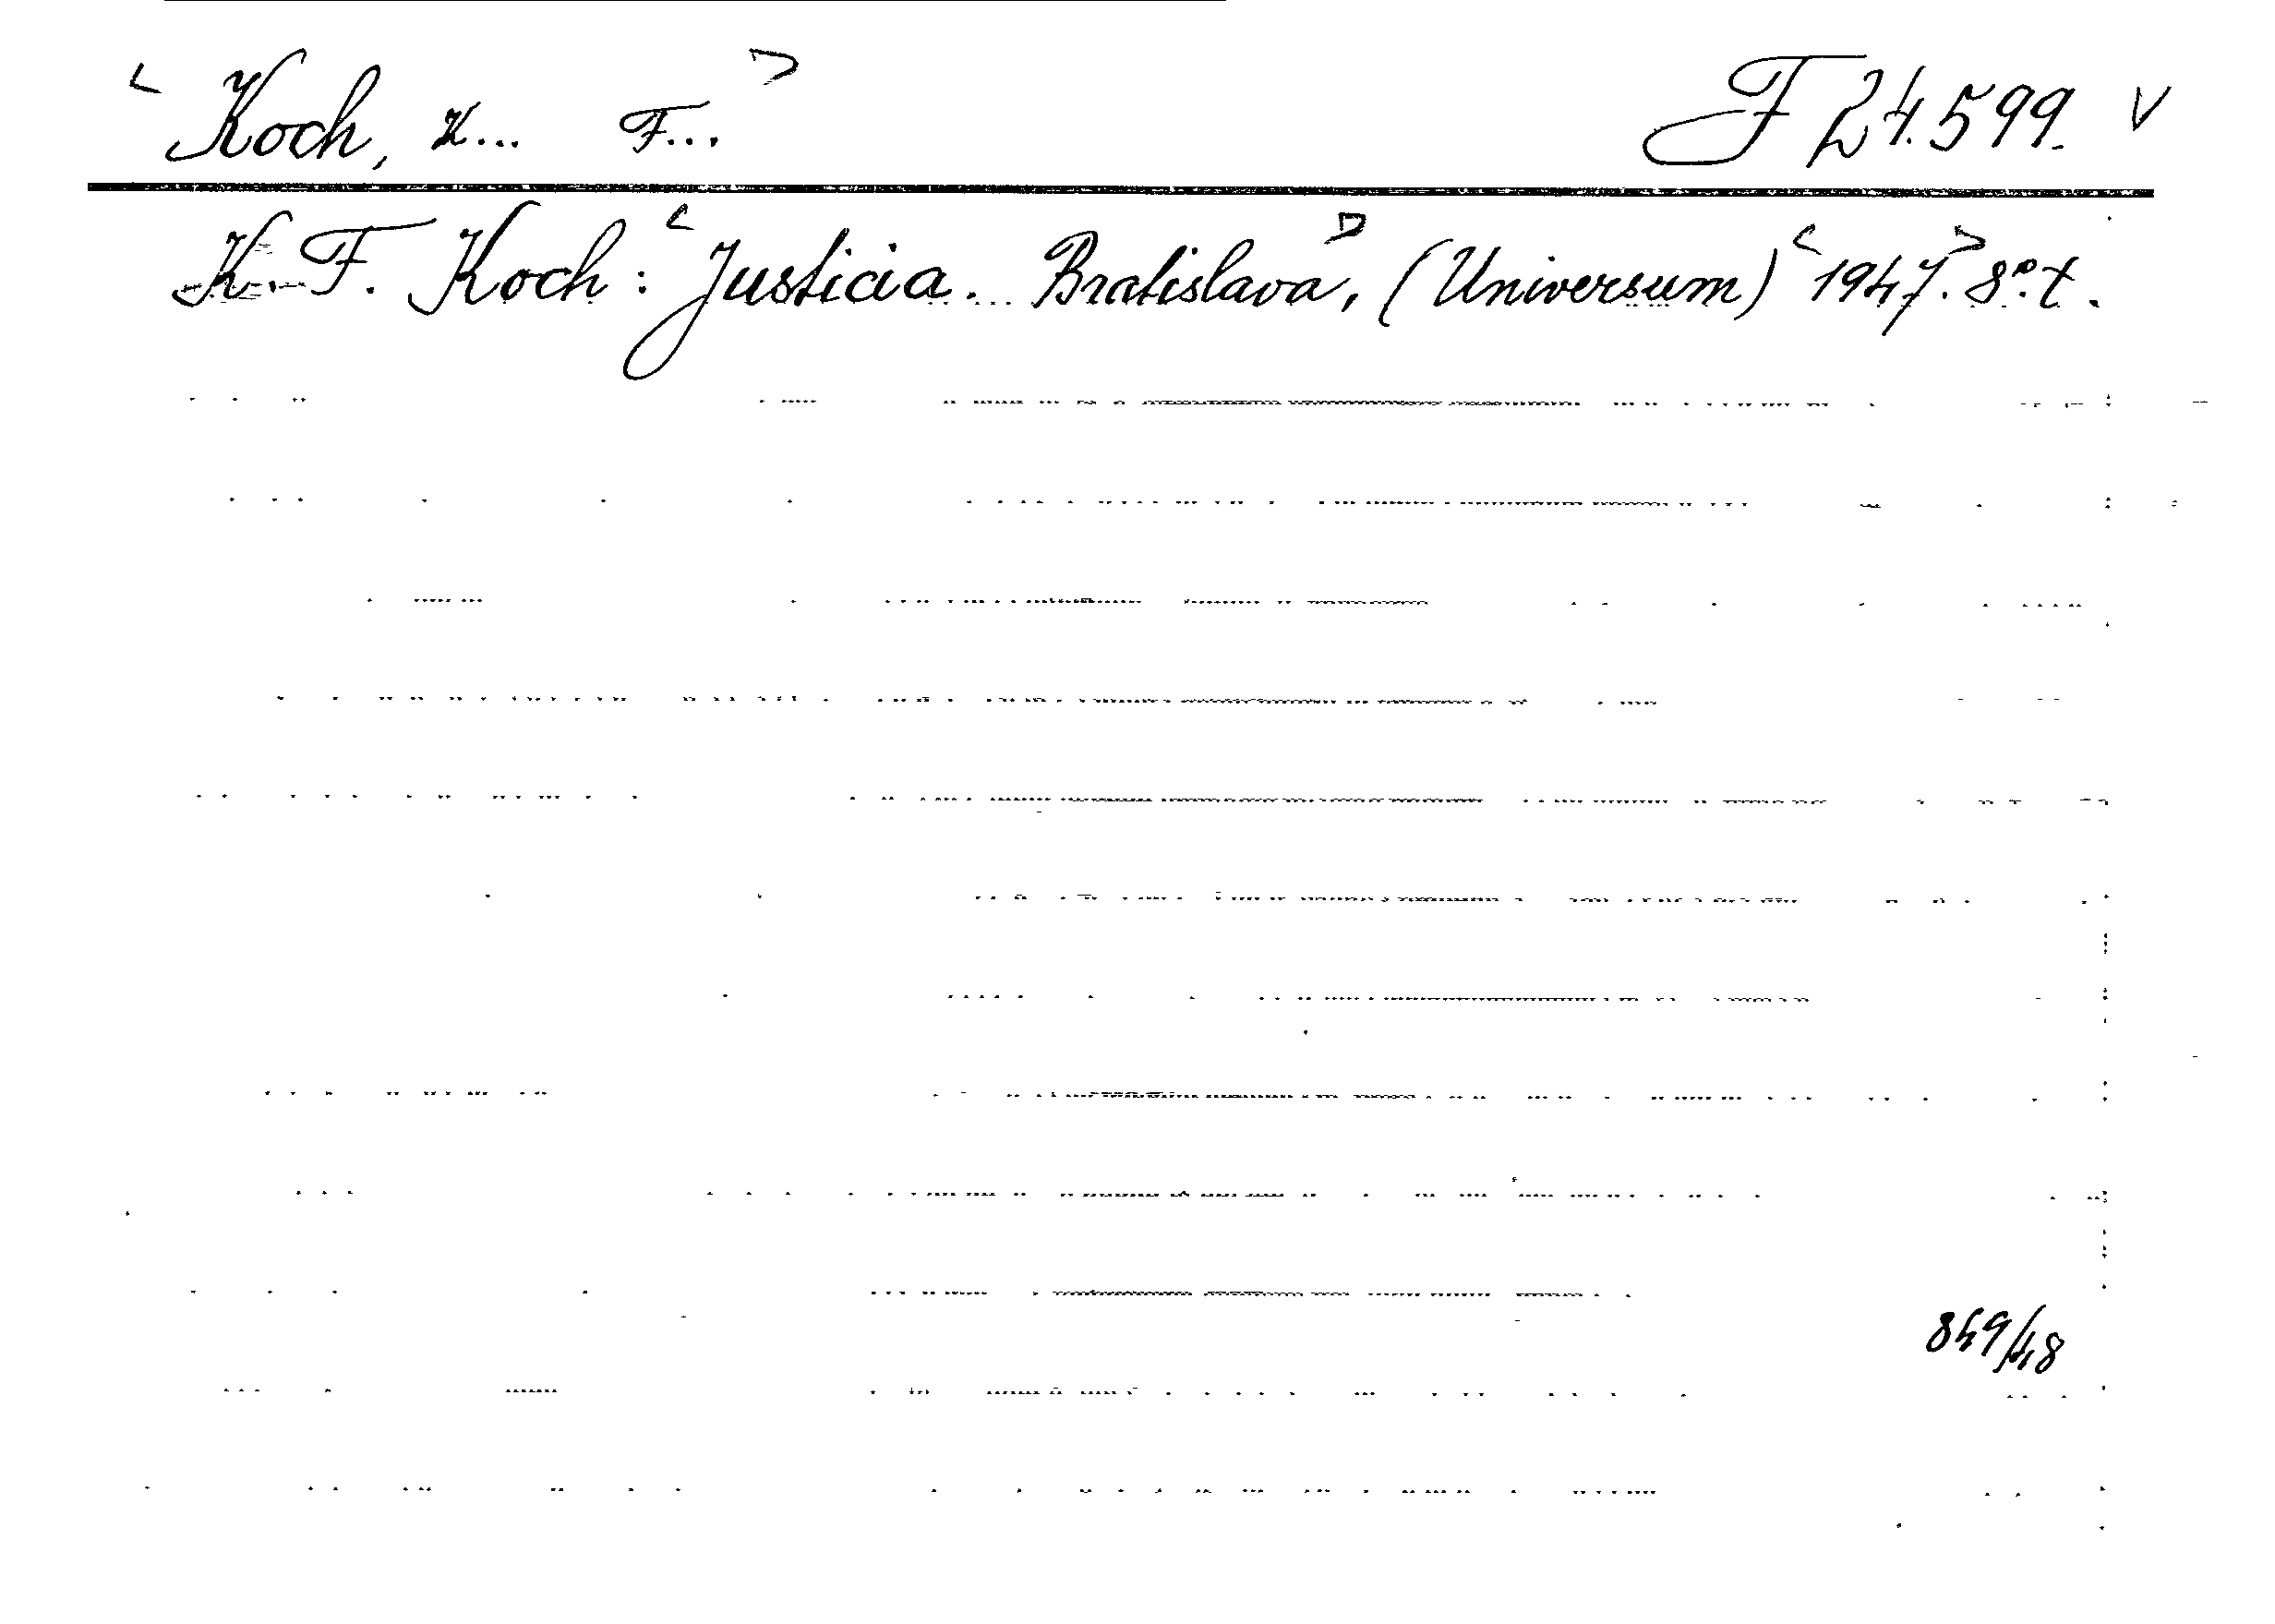 < Koch, K... F... > F 24.599. V
K. F. Koch: < Justicia. Bratislava, > (Universum) < 1947. > 8°. t.
849/48